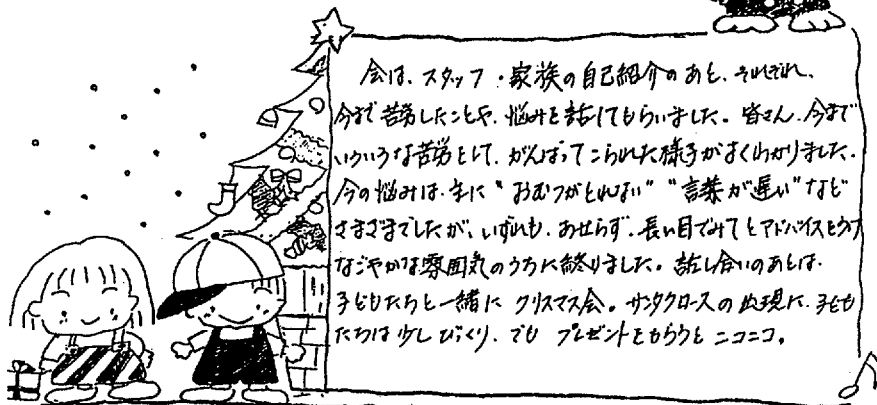 会は、スタッフ・家族の自己紹介のあと、それぞれ、
今まで苦労したことや、悩みを話してもらいました。皆さん、今まで
いろいろな苦労をして、がんばってこられた様子がよくわかりました。
今の悩みは、主に“おむつがとれない”“言葉が遅い”など
さまざまでしたが、いずれも、あせらず、長い目でみてとアドバイスをうけ
なごやかな雰囲気のうちに終りました。話し合いのあとは、
子どもたちと一緒に クリスマス会。サンタクロースの出現に、子ども
たちは少しびっくり、でも プレゼントをもらうと ニコニコ。